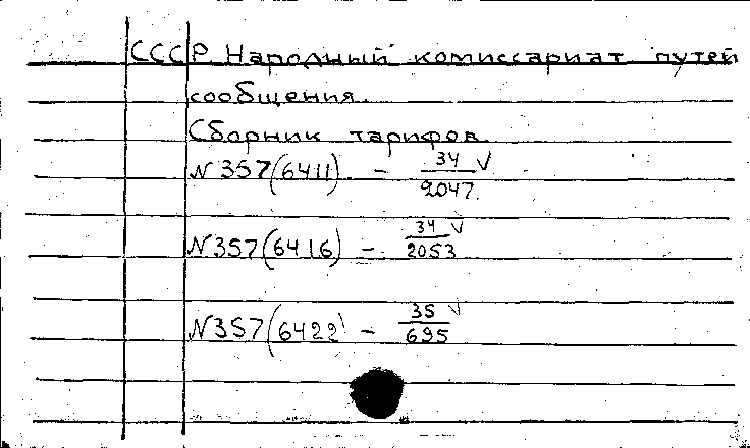 СССР Народный комиссариат путей
сообщения.
Сборник тарифов.
N 357(6411) - 34/2047. V
N357(6416) - 34/2053 V
N357(6422) - 35/695 V